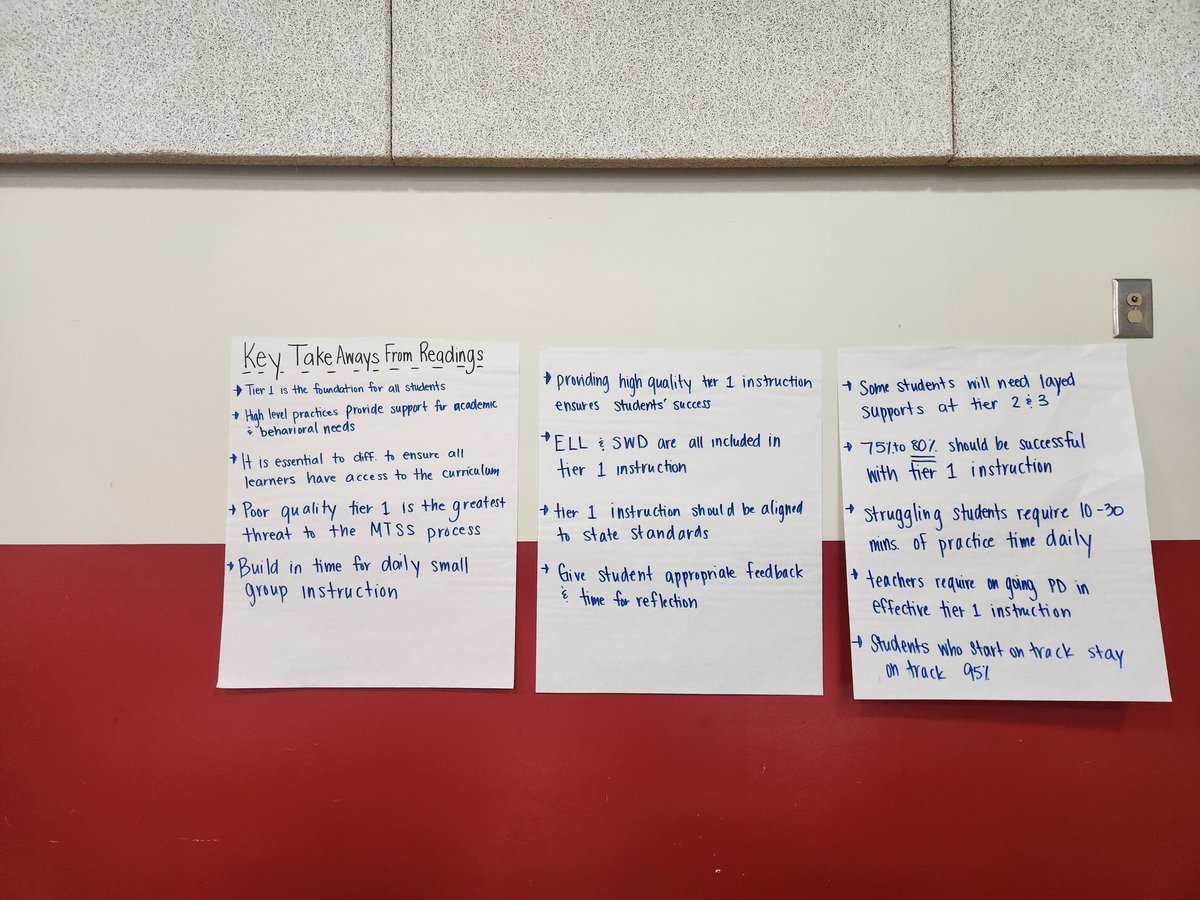 Key Take Aways From Readings
→ Tier 1 is the foundation for all students
→ High level practices provide support for academic
& behavioral needs
→ It is essential to diff. to ensure all
learners have access to the curriculum
→ Poor quality tier 1 is the greatest
threat to the MTSS process
→ Build in time for daily small
group instruction
→ providing high quality tier 1 instruction
ensures students' success
→ ELL & SWD are all included in
tier 1 instruction
→ tier 1 instruction should be aligned
to state standards
→ Give student appropriate feedback
& time for reflection
→ Some students will need layed
supports at tier 2 & 3
→ 75% to 80% should be successful
with tier 1 instruction
→ Struggling students require 10-30
mins. of practice time daily
→ teachers require on going PD in
effective tier 1 instruction
→ Students who start on track stay
on track 95%